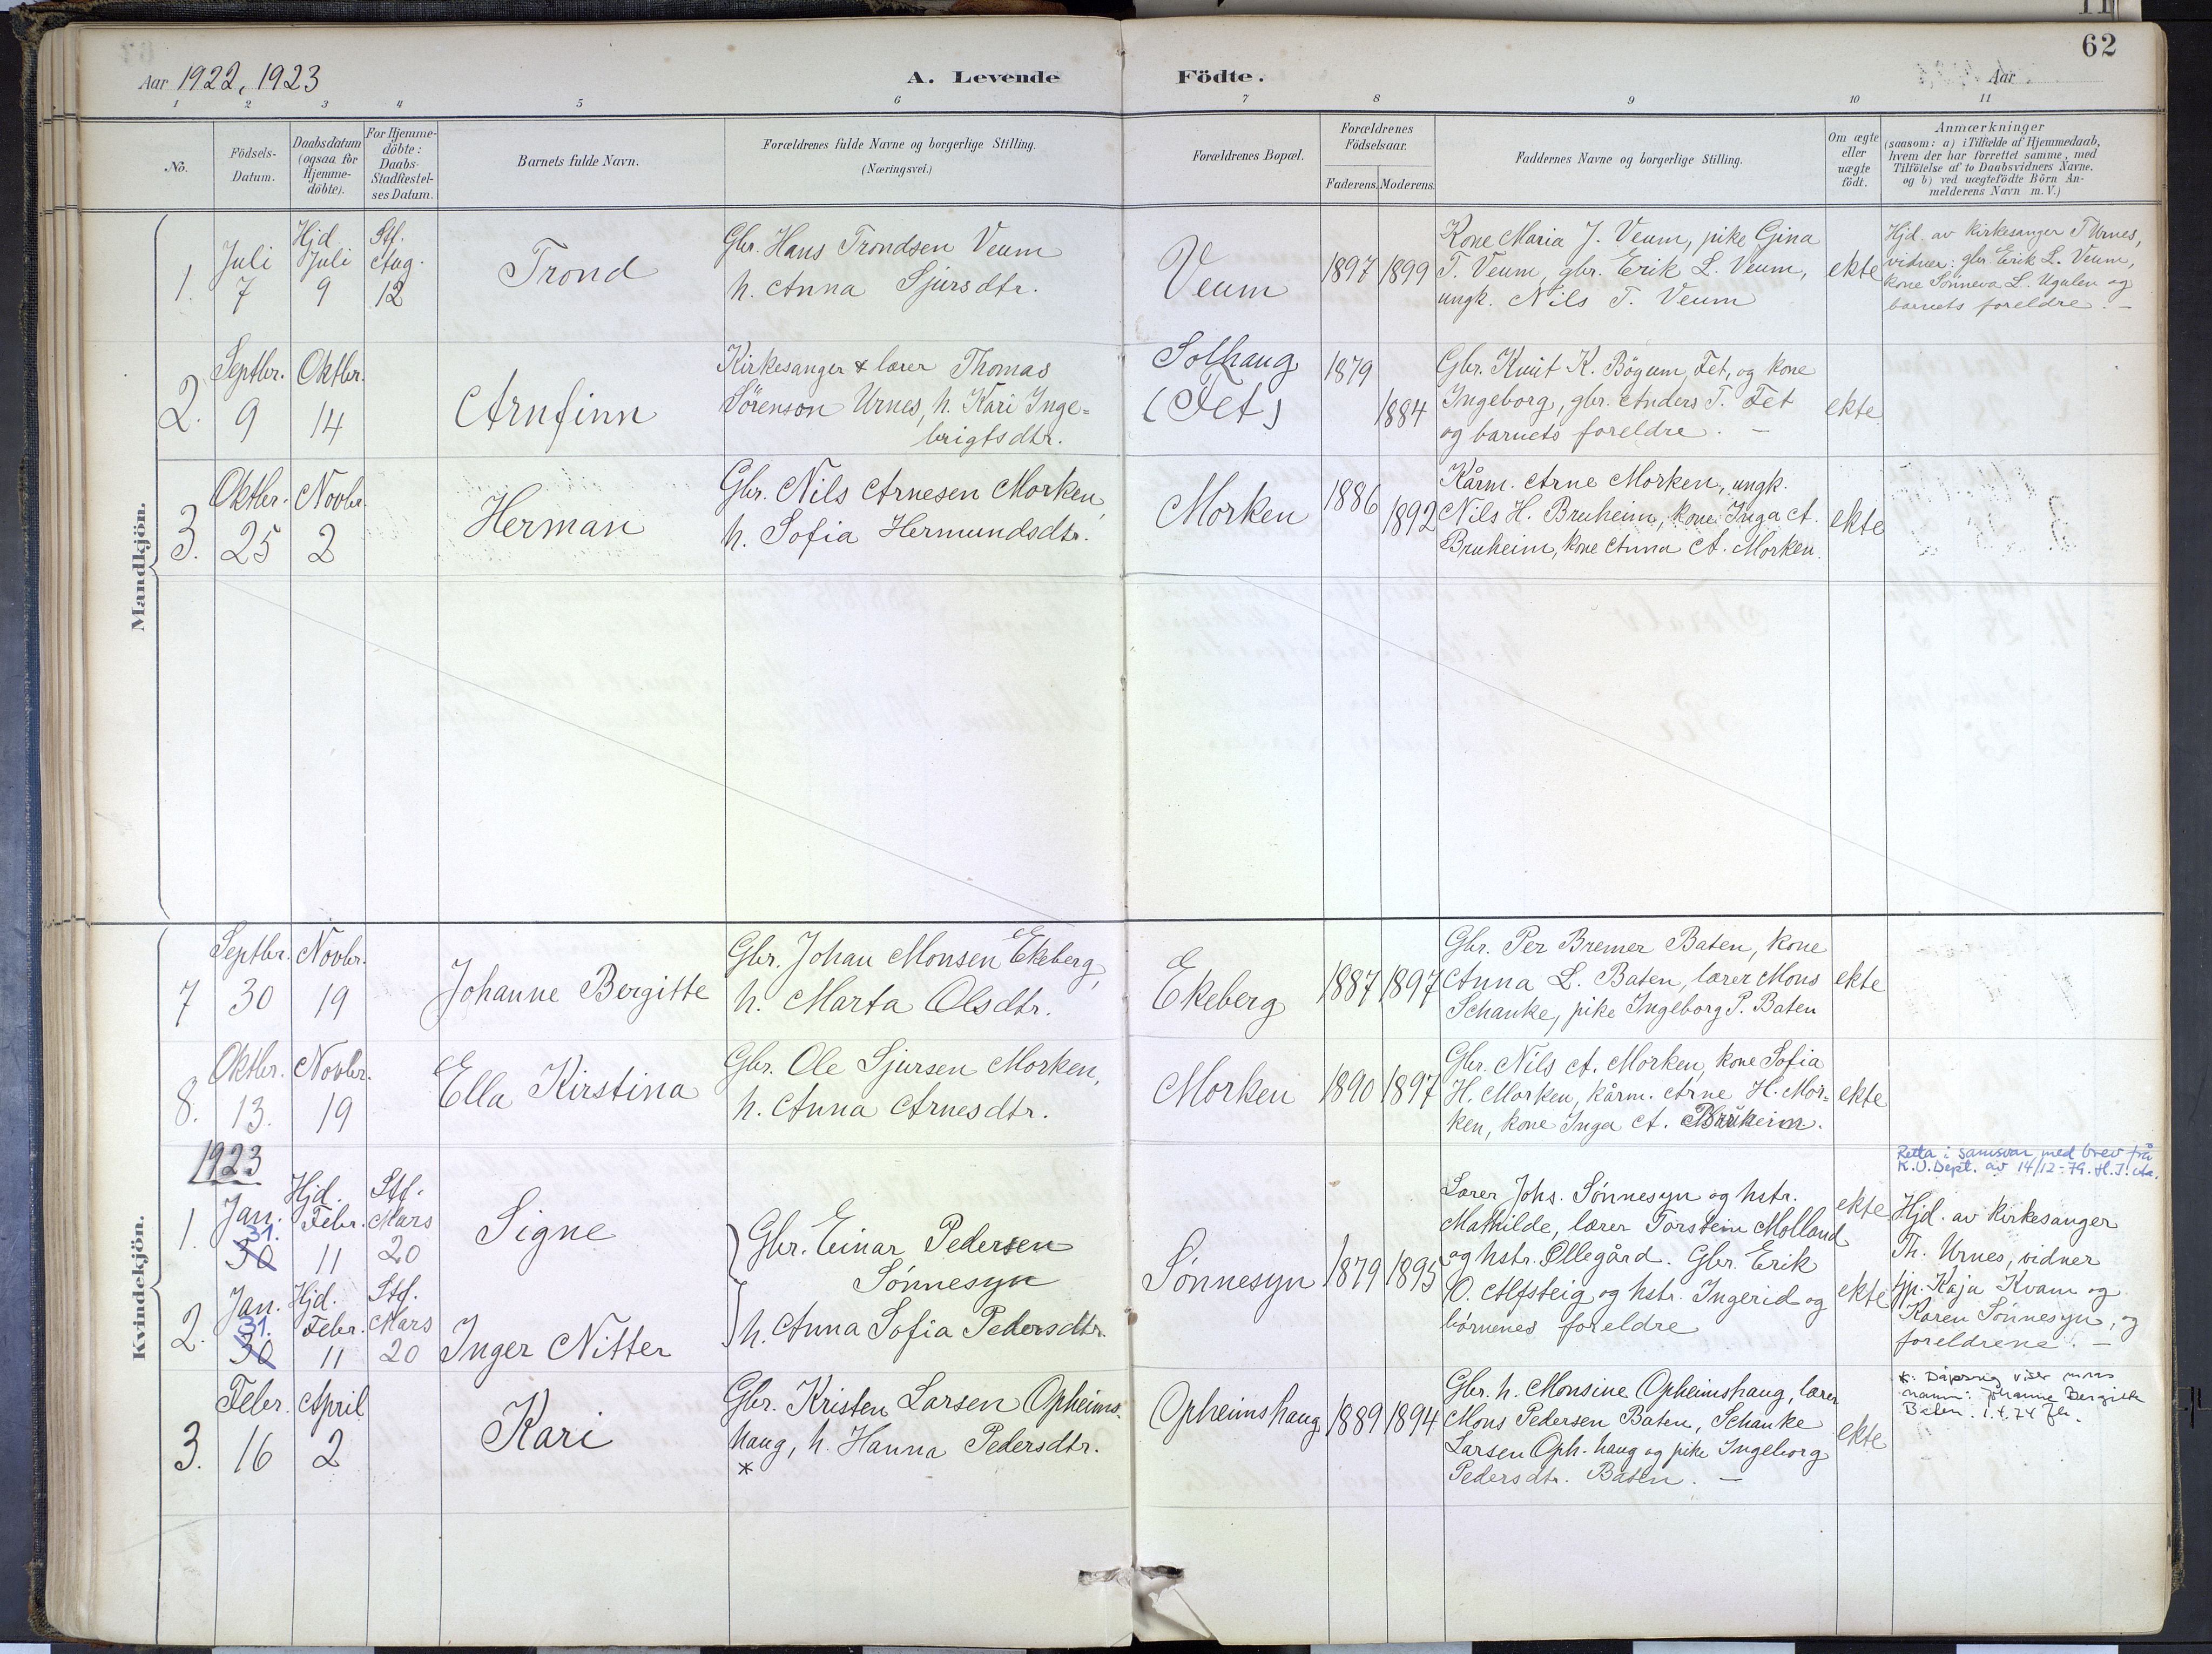 62
Aar 1922, 1923
A. Levende Födte.
Aar
1 2 3 4 5 6 7 8 9 10 11
No.
Födsels-Datum.
Daabsdatum (ogsaa for Hjemme-döbte).
For Hjemme-döbte: Daabs-Stadfæstel-ses Datum.
Barnets fulde Navn.
Forældrenes fulde Navne og borgerlige Stilling.
(Næringsvei.)
Forældrenes Bopæl.
Forældrenes Födselsaar.
Faderens. Moderens.
Faddernes Navne og borgerlige Stilling.
Om ægte eller uægte födt.
Anmærkninger
(saasom: a) i Tilfælde af Hjemmedaab,
hvem der har forrettet samme, med
Tilföielse af to Daabsvidners Navne.
og b) ved uægtefödte Börn An-
melderens Navn m. V.)
Mandkjön.
1. Juli 7
Hjd. Juli 9
Stf. Aug. 12
Trond
Gbr. Hans Trondsen Veum
h. Anna Sjursdtr.
Veum
1897 1899
Kone Maria J. Veum, pike Gina
T. Veum, gbr. Erik L. Veum,
ungk. Nils T. Veum
ekte
Hjd. av kirkesanger T Urnes,
vidner: gbr. Erik L. Veum,
kone Sönneva L. Ugulen og
barnets foreldre. —
2. Septbr. 9
Oktbr. 14
Arnfinn
Kirkesanger & lærer Thomas
Sörenson Urnes, h. Kari Inge=
brigtsdtr.
Solhaug
(Fet)
1879 1884
Gbr. Knut K. Bögum, Fet, og kone
Ingeborg, gbr. Anders T. Fet
og barnets foreldre. —
ekte
3. Oktbr. 25
Novbr. 2
Herman
Gbr. Nils Arnesen Morken,
h. Sofia Hermundsdtr.
Morken
1886 1892
Kårm. Arne Morken, ungk.
Nils H. Bruheim, kone Inga A.
Bruheim, kone Anna A. Morken.
ekte
Kvindekjön.
7 Septbr. 30
Novbr. 19
Johanne Bergitte
Gbr. Johan Monsen Ekeberg,
h. Marta Olsdtr.
Ekeberg
1887 1897
Gbr. Per Bremer Baten, kone
Anna L. Baten, lærer Mons
Schanke, pike Ingeborg P. Baten
ekte
8. Oktbr. 13.
Novbr. 19
Ella Kirstina
Gbr. Ole Sjursen Morken,
h. Anna Arnesdtr.
Morken
1890 1897
Gbr. Nils A. Morken, kone Sofia
H. Morken, kårm. Arne H. Mor=
ken, kone Inga A. Bruheim.
ekte
1923
Retta i samsvar med brev frå
K.U.Dept. av 14/12-79.
1. Jan. 31. 30
Hjd. Febr. 11
Stf. Mars 20
Signe
Gbr. Einar Pedersen
Sönnesyn
h. Anna Sofia Pedersdtr.
Sönnesyn
1879 1895
Lærer Johs. Sönnesyn og hstr.
Mathilde, lærer Torstein Molland
og hstr. Ollegård. Gbr. Erik
O. Alfsteig og hstr. Ingerid og
börnenes foreldre
ekte
Hjd. av kirkesanger
Th. Urnes, vidner
jp. Kaja Kvam og
Karen Sönnesyn, og
foreldrene. —
2. Jan. 31. 30
Hjd. Febr. 11
Stf. Mars 20
Inger Nitter
ekte
3. Febr. 16
April 2
Kari
Gbr. Kristen Larsen Opheims-
haug, h. Hanna Pedersdtr.
*
Opheimshaug
1889 1894
Gbr. h. Monsine Opheimshaug, lærer
Mons Pedersen Baten, Schanke
Larsen Oph. haug og pike Ingeborg
Pedersdtr. Baten. —
ekte
*: Dåpsreg viser mors
namn: Johanne Bergitte
Baten. 1.4.74